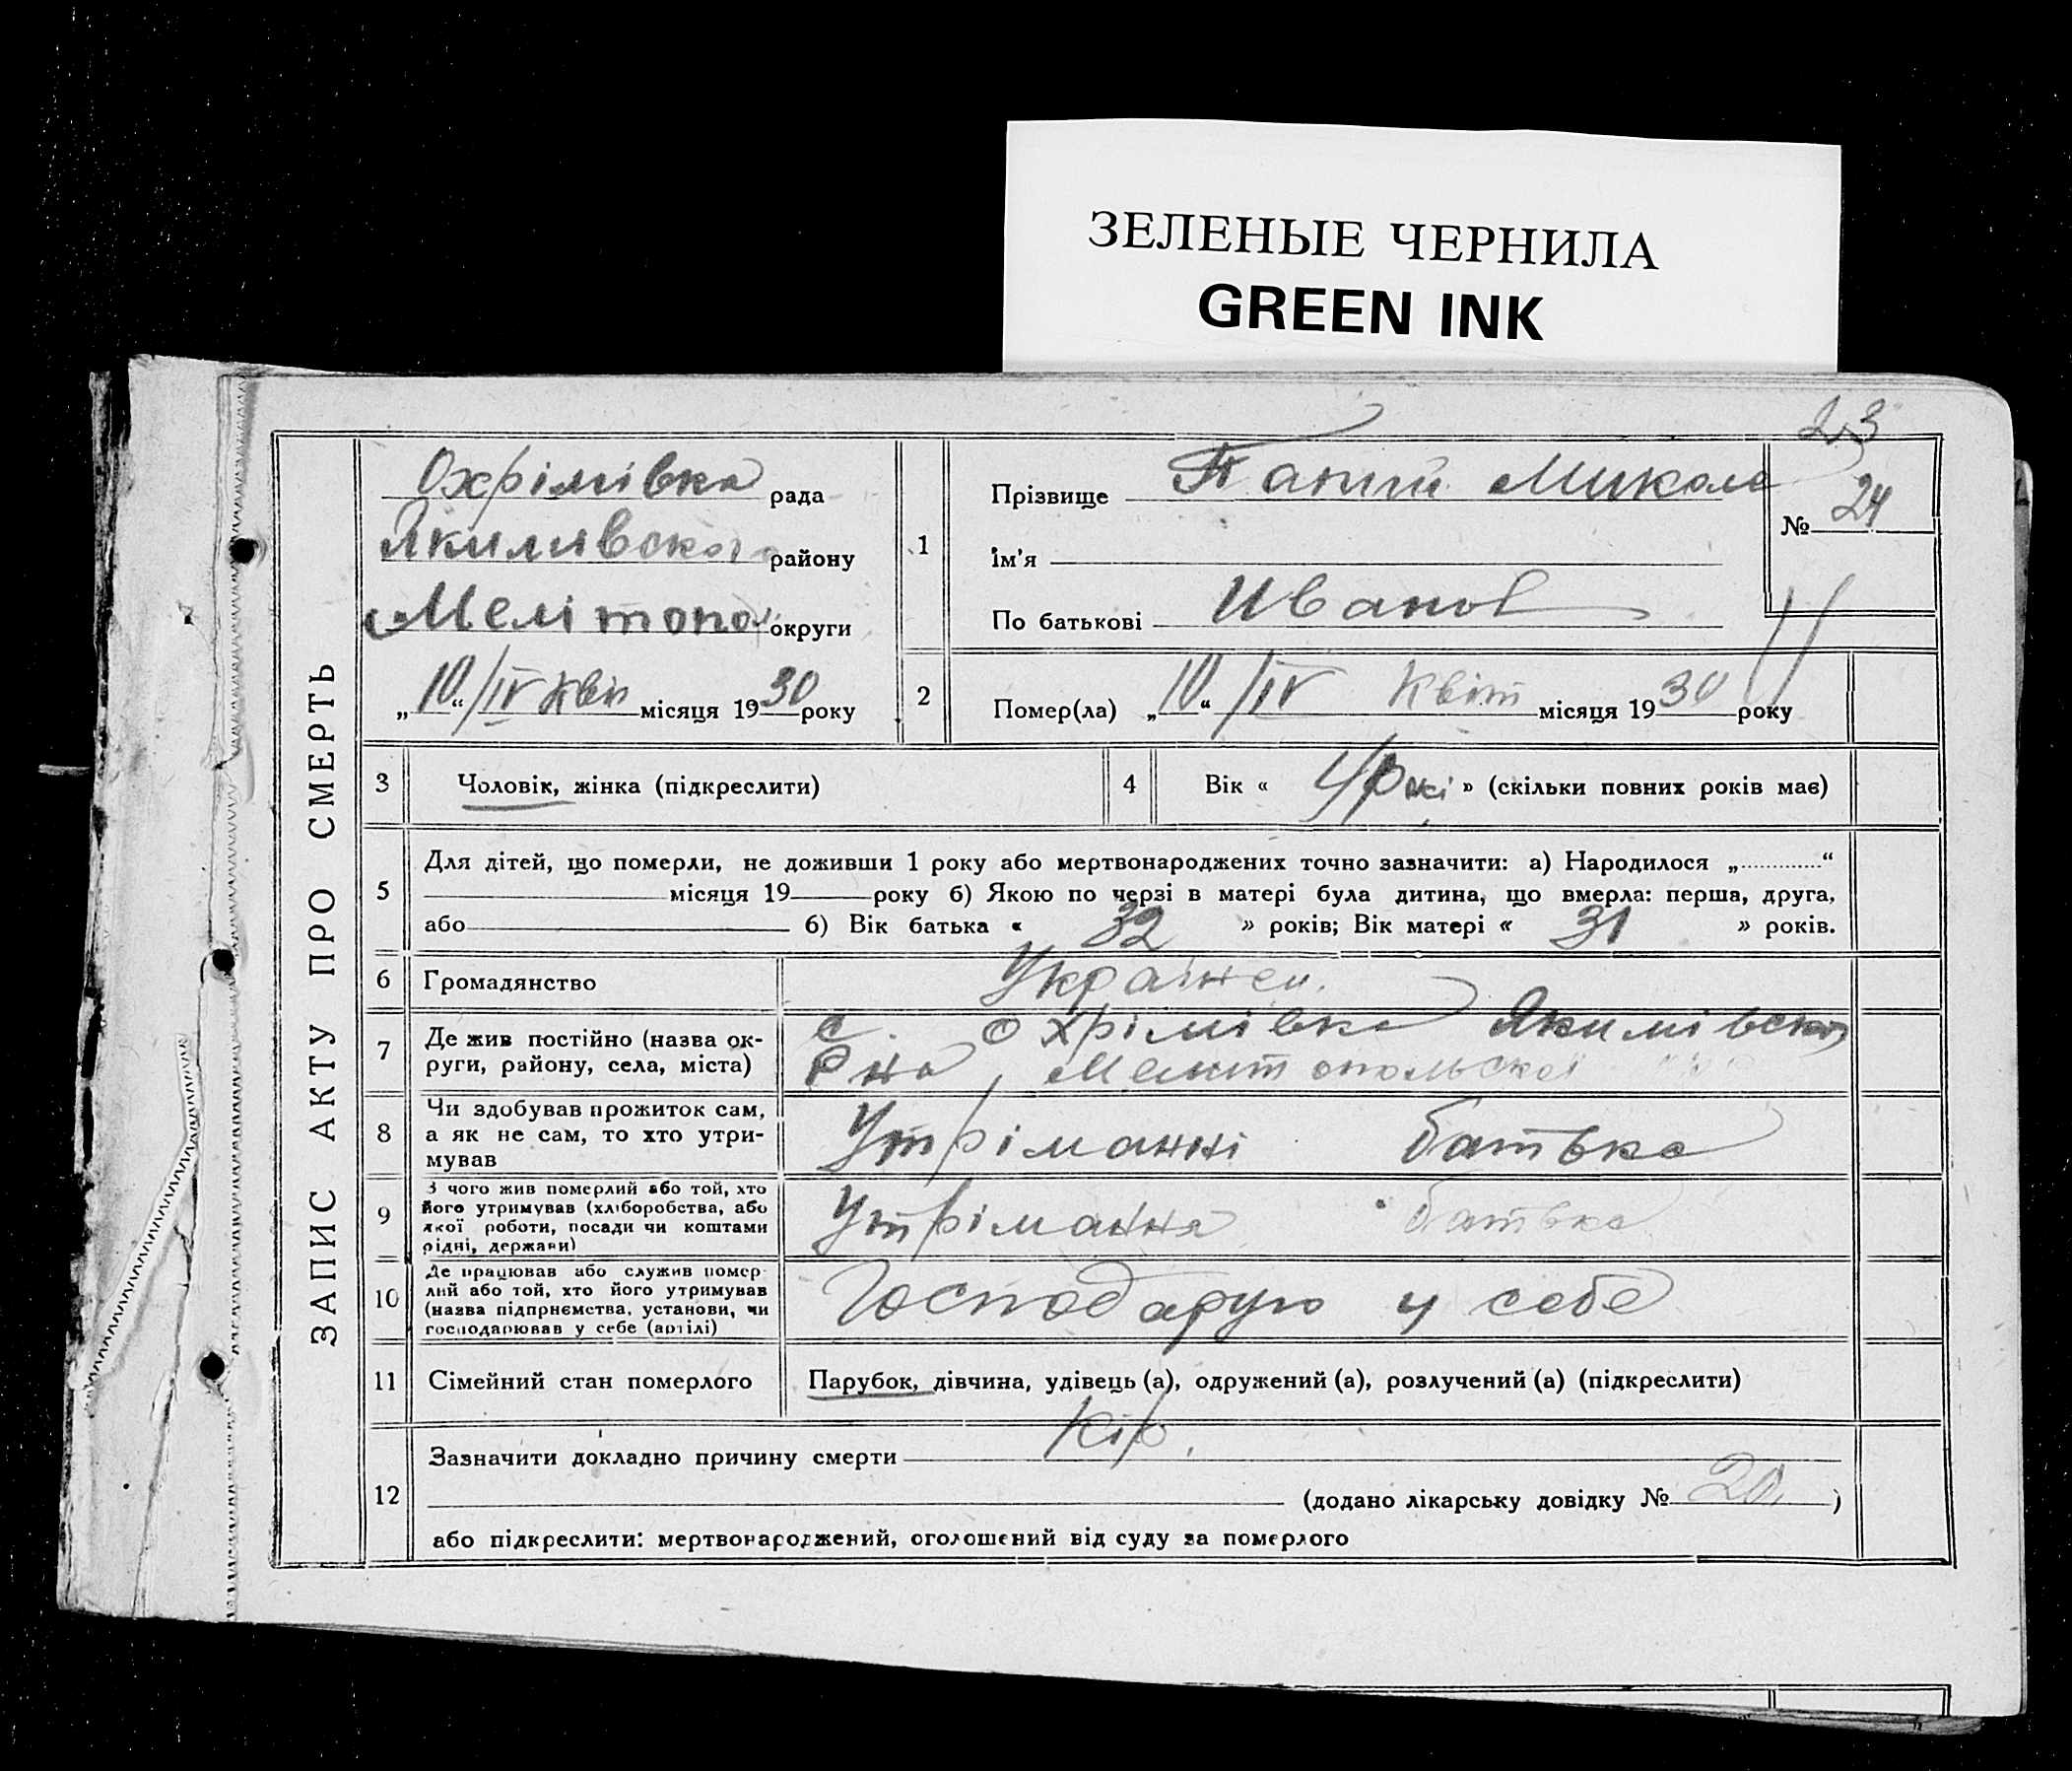 ЗЕЛЕНЫЕ ЧЕРНИЛА
GREEN INK
23
ЗАПИС АКТУ ПРО СМЕРТЬ
Охрімівка рада
Якимівского району
Мелітопол округи
„10“/IV квіт місяця 1930 року
1
Прізвище Микола
Ім'я
По батькові Иванов
№ 24
2
Помер(ла) „10“ /IV Квіт місяця 1930 року
3 Чоловік, жінка (підкреслити)
4 Вік « 4 рокі » (скільки повних років має)
5
Для дітей, що померли, не доживши 1 року або мертвонароджених точно зазначити: а) Народилося „ “
місяця 19 року б) Якою по черзі в матері була дитина, що вмерла: перша, друга,
або б) Вік батька « 32 » років; Вік матері « 31 » років.
6 Громадянство Українец.
7
Де жив постійно (назва ок-
руги, району, села, міста)
с. Охрімівка Якимівског
Р на, Мелитопольскої
8
Чи здобував прожиток сам,
а як не сам, то хто утри-
мував
Утріманні батька
9
З чого жив померлий або той, хто
його утримував (хліборобства, або
якої роботи, посади чи коштами
рідні, держави)
Утрімання батька
10
Де працював або служив помер-
лий або той, хто його утримував
(назва підприємства, установи, чи
господарював у себе (артілі)
Господарую у себе
11 Сімейний стан померлого
Парубок, дівчина, удівець (а), одружений (а), розлучений (а) (підкреслити)
12
Зазначити докладно причину смерти Кір.
(додано лікарську довідку № 20. )
або підкреслити: мертвонароджений, оголошений від суду за померлого